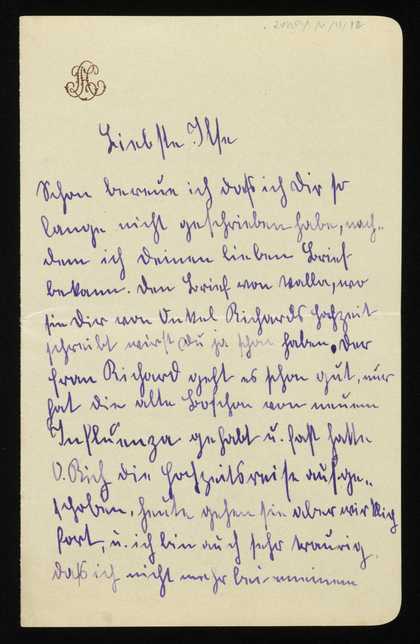 Liebste Ilse
Schon bereue ich daß ich Dir so
lange nicht geschrieben habe, nach-
dem ich deinen lieben Brief
bekam. Den Brief von Walla, wo
sie Dir von Onkel Richards Hochzeit
schreibt wirst Du ja schon haben. Der
Frau Richard geht es schon gut, nur
hat die alte von neuem
Influenza gehabt u. fast hätte
O. Rich die Hochzeitsreise aufge-
schoben, heute gehen sie aber wirklich
fort, u. ich bin auch sehr traurig
daß ich nicht mehr bei meinem